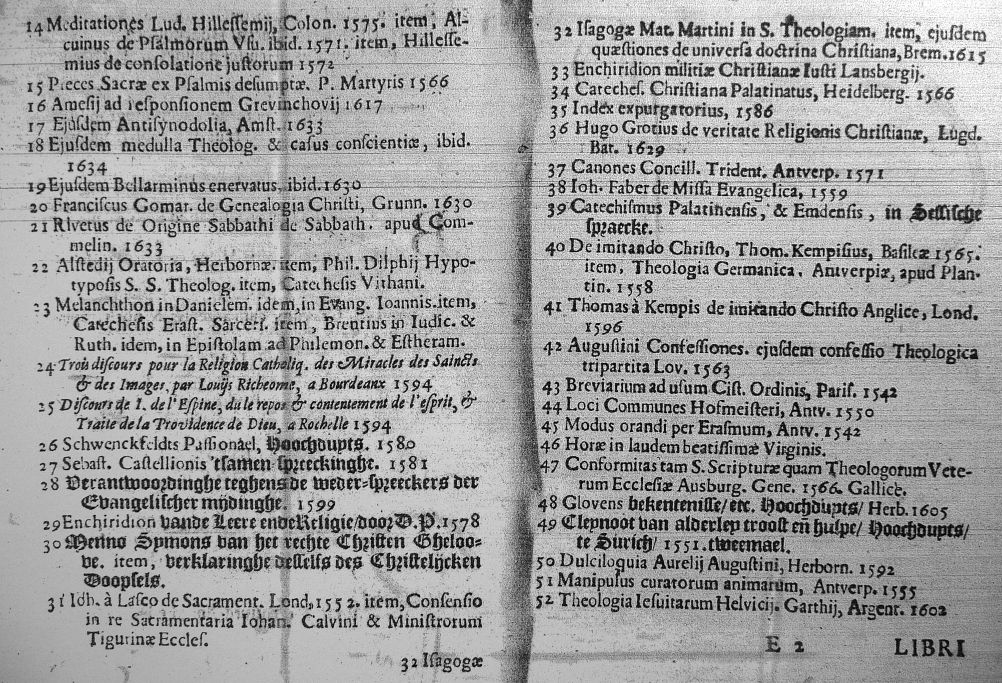 14 Meditationes Lud. Hillessemij, Colon. 1575. item, Al-
cuinus de Psalmorum Vsu. ibid. 1571. item, Hillesse-
mius de consolatione justorum 1572
15 Preces Sacræ ex Psalmis desumptæ. P. Martyris 1566
16 Amesij ad responsionem Grevinchovij 1617
17 Ejusdem Antisynodolia, Amst. 1633
18 Ejusdem medulla Theolog. & casus conscientiæ, ibid.
1634
19 Ejusdem Bellarminus enervatus. ibid. 1630
20 Franciscus Gomar. de Genealogia Christi, Grunn. 1630
21 Rivetus de Origine Sabbathi de Sabbath. apud Com-
melin. 1633
22 Alstedij Oratoria, Herbornæ. item, Phil. Dilphij Hypo-
typosis S. S. Theolog. item, Catechesis Vithani.
23 Melanchthon in Danielem. idem, in Evang. Ioannis. item,
Catechesis Erast. Sarcers. item, Brentius in Iudic. &
Ruth. idem, in Epistolam ad Philemon. & Estheram.
24 Trois discours pour la Religion Catholiq. des Miracles des Saincts
& des Images, par Louijs Richeome, a Bourdeaux 1594
25 Discours de I. de l'Espine, du le repos & contentement de l'esprit, &
Traite de la Providence de Dieu, a Rochelle 1594
26 Schwenckfeldts Passionael, Hoochdupts. 1580
27 Sebast. Castellionis 'tsamen-spreeckinghe. 1581
28 Verantwoordinghe teghens de weder-spreeckers der
Evangelischer mijdinghe. 1599
29 Enchiridion vande Leere ende Religie/door D. P. 1578
30 Menno Symons van het rechte Christen Gheloo-
ve. item, verklaringhe desselfs des Christelijcken
Doopsels.
31 Ioh. à Lasco de Sacrament. Lond, 1552. item, Consensio
in re Sacramentaria Iohan. Calvini & Ministrorum
Tigurinæ Eccles.
32 Isagogæ
32 Isagogæ Mat. Martini in S. Theologiam. item, ejusdem
quæstiones de universa doctrina Christiana, Brem. 1615
33 Enchiridion militiæ Christianæ Iusti Lansbergij.
34 Cateches. Christiana Palatinatus, Heidelberg. 1566
35 Index expurgatorius, 1586
36 Hugo Grotius de veritate Religionis Christianæ, Lugd.
Bat. 1629
37 Canones Concill. Trident. Antverp. 1571
38 Ioh. Faber de Missa Evangelica, 1559
39 Catechismus Palatinensis, & Emdensis, in Sessische
spraecke.
40 De imitando Christo, Thom. Kempisius, Basileæ 1565.
item, Theologia Germanica, Antverpiæ, apud Plan-
tin. 1558
41 Thomas à Kempis de imitando Christo Anglice, Lond.
1596
42 Augustini Confessiones. ejusdem confessio Theologica
tripartita Lov. 1563
43 Breviarium ad usum Cist. Ordinis, Paris. 1542
44 Loci Communes Hofmeisteri, Antv. 1550
45 Modus orandi per Erasmum, Antv. 1542
46 Horæ in laudem beatissimæ Virginis.
47 Conformitas tam S. Scripturæ quam Theologorum Vete-
rum Ecclesiæ Ausburg. Gene. 1566. Gallice.
48 Glovens bekentenisse/ etc. Hoochdupts/ Herb. 1605
49 Clepnoot van alderley troost eñ hulpe/ Hoochdupts/
te Surich/ 1551. tweemael.
50 Dulciloquia Aurelij Augustini, Herborn. 1592
51 Manipulus curatorum animarum, Antverp. 1555
52 Theologia Iesuitarum Helvicij. Garthij, Argent. 1602
E 2 LIBRI